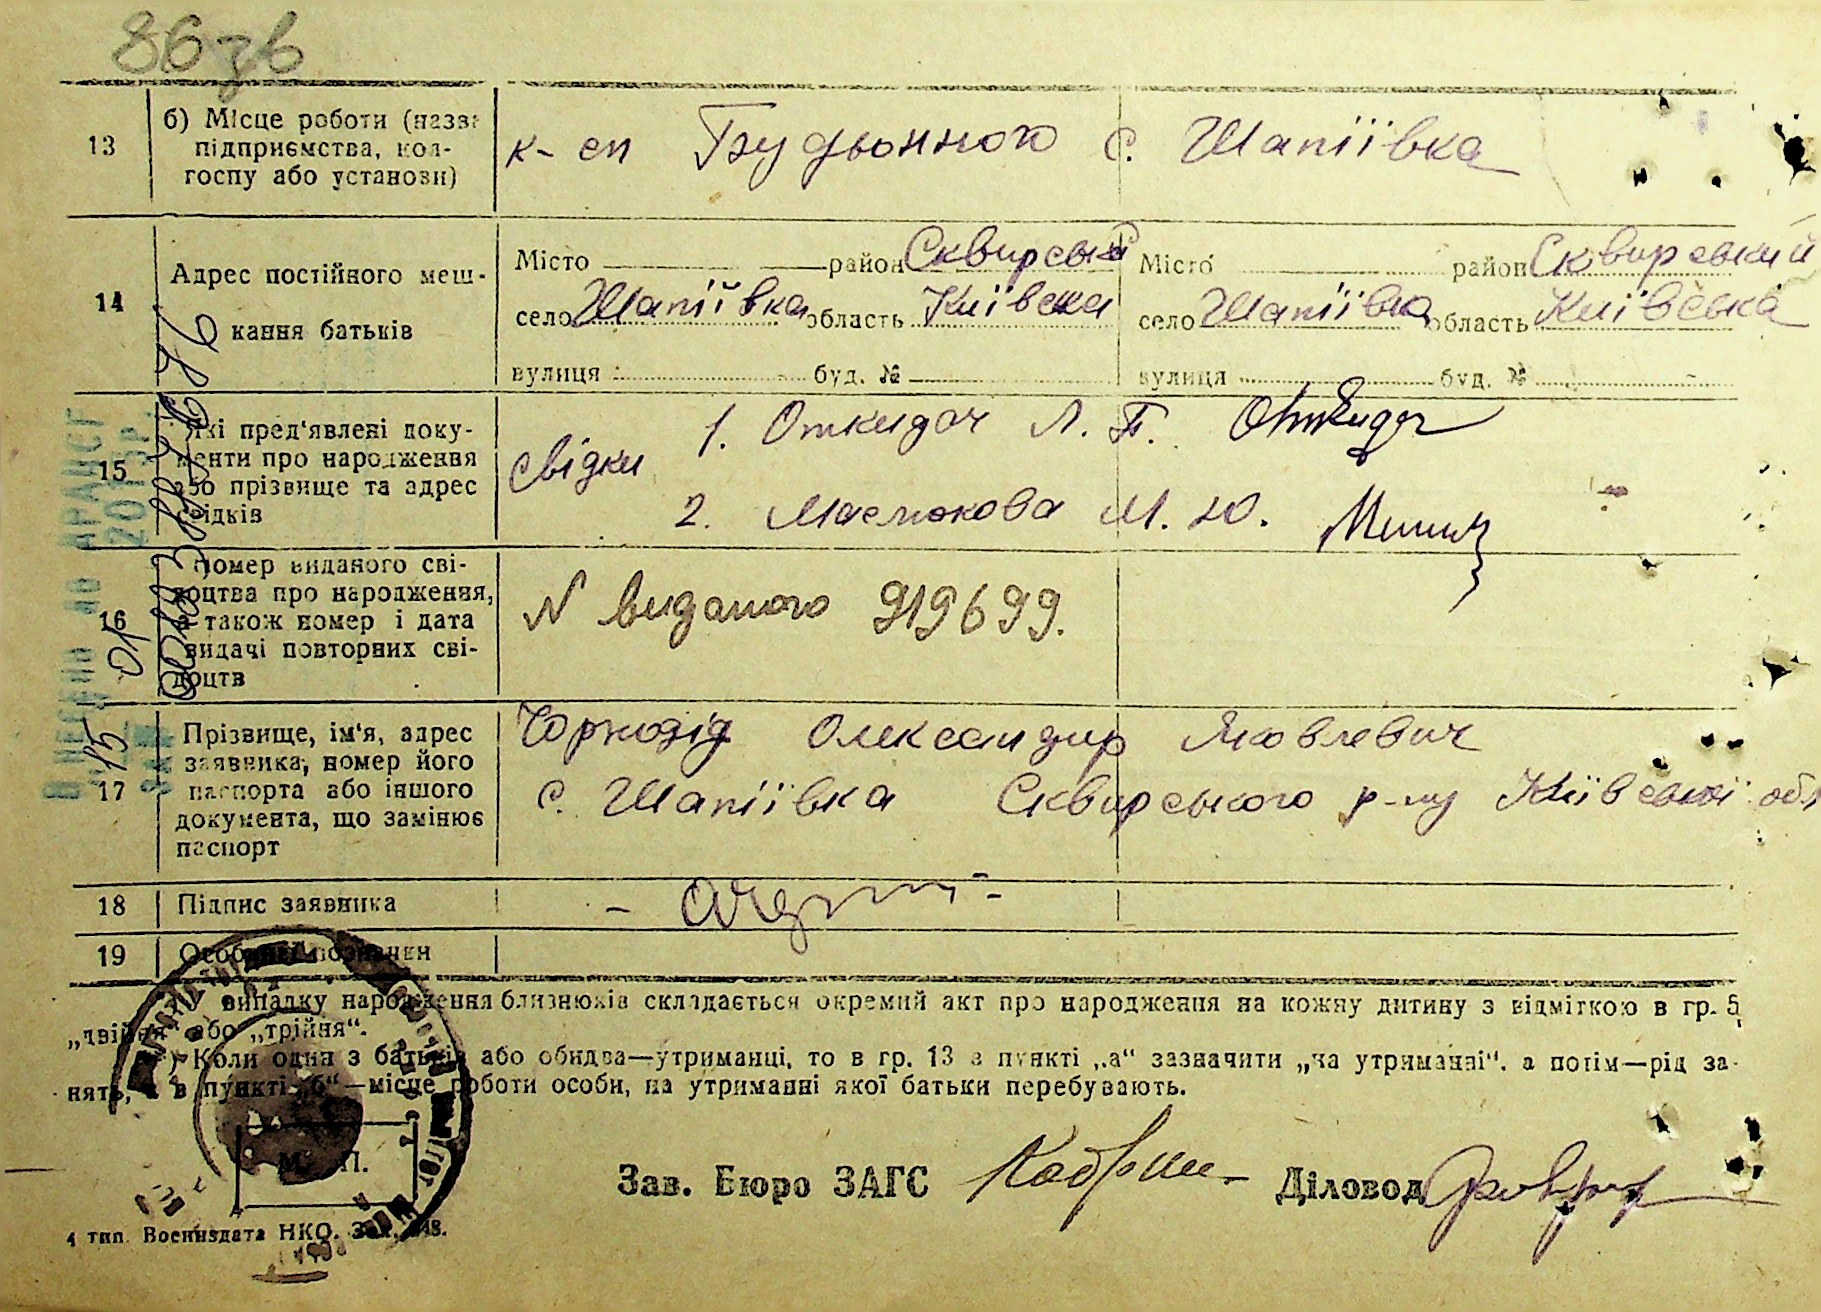 86 зв
13
б) Місце роботи (назва
підприємства, кол-
госпу або установи)
к-сп Будьонного с. Шапіївка
14
Адрес постійного меш-
кання батьків
Місто район Сквирськ
село Шапіївка область Київска
вулиця буд. №
Місто район Сквирський
село Шапіївка область Київська
вулиця буд. №
15
Які пред'явлені доку-
менти про народження
або прізвище та адрес
свідків
свідки
1. Откидач Л. П.
2. Маслюкова М. Ю.
16
Номер виданого сві-
доцтва про народження,
а також номер і дата
видачі повторних сві-
доцтв
N виданого 919699.
17
Прізвище, ім'я, адрес
заявника, номер його
паспорта або іншого
документа, що замінює
паспорт
Чорнодід Олександир Яковлевич
с. Шапіївка Сквирського р-ну Київської обл
18
Підпис заявника
19
Особливі позначки
У випадку народження близнюків складається окремий акт про народження на кожну дитину з відміткою в гр. 5
„двійня" або „трійня".
Коли один з батьків або обидва—утриманці, то в гр. 13 в пункті „а" зазначити „на утриманні". а потім—рід за-
нять, а в пункті „б"—місце роботи особи, на утриманні якої батьки перебувають.
М. П.
Зав. Бюро ЗАГС
Діловод
4 тип. Воениздата НКО. Зак.
ВНЕСЕНО ДО ДРАЦСГ
15 01 2015р.
ЗА №